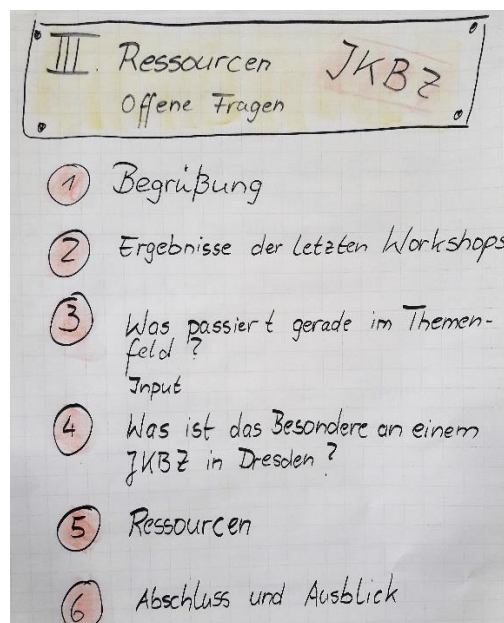 III. Ressourcen JKBZ
Offene Fragen
1 Begrüßung
2 Ergebnisse der letzten Workshops
3 Was passiert gerade im Themen-
feld ?
Input
4 Was ist das Besondere an einem
JKBZ in Dresden ?
5 Ressourcen
6 Abschluss und Ausblick